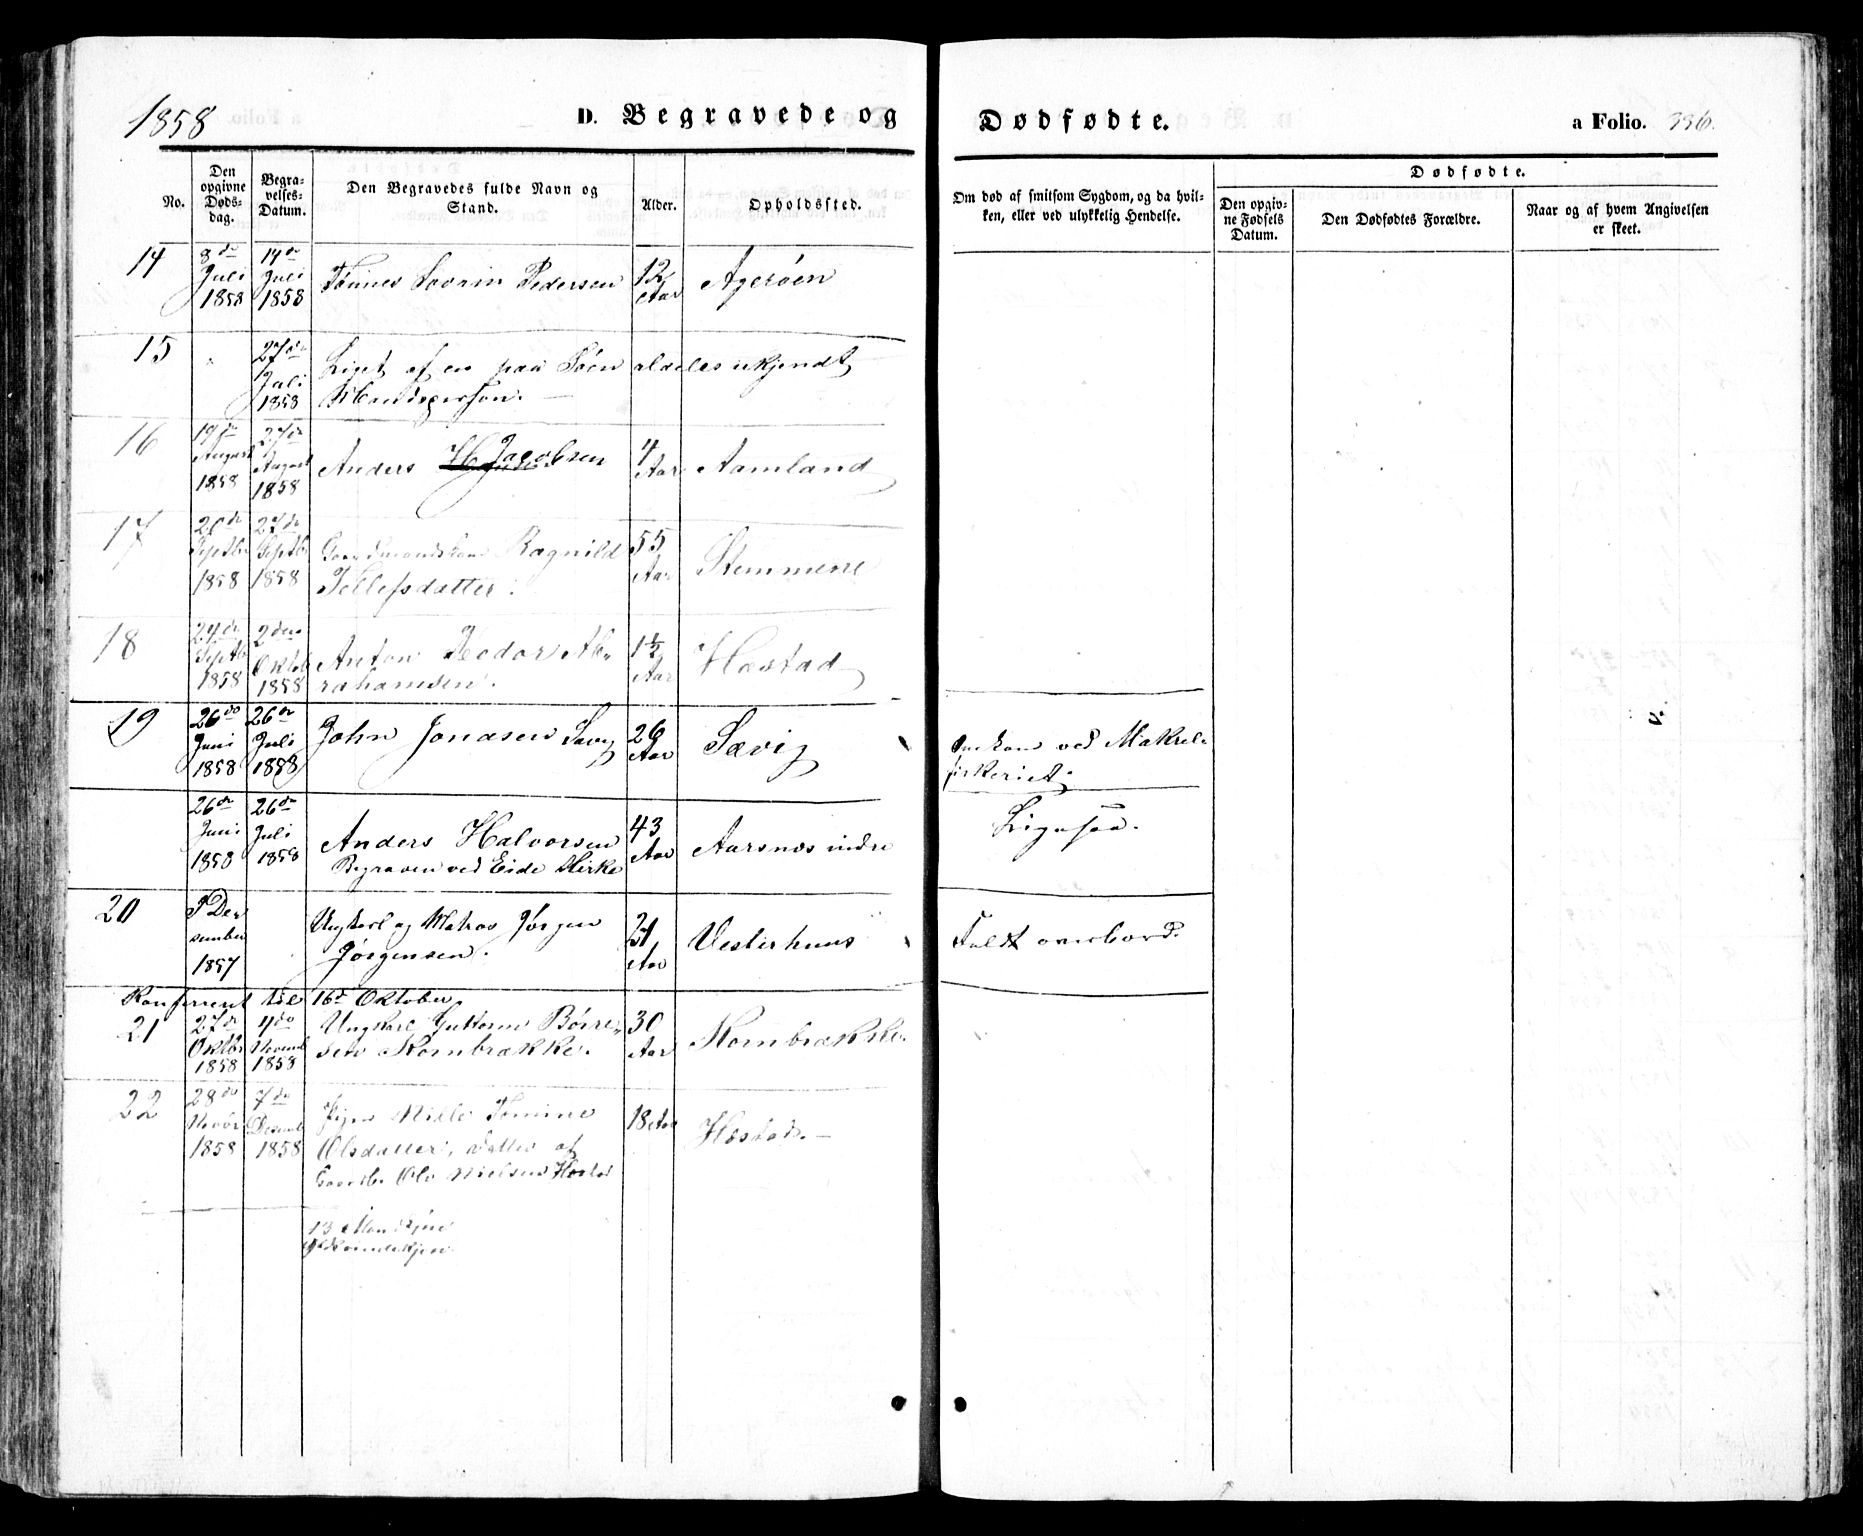 1858
D. Begravede og Dødfødte.
a Folio. 336.
No.
Den opgivne Døds-dag.
Begra-velses-Datum.
Den Begravedes fulde Navn og Stand.
Alder.
Opholdssted.
Om død af smitsom Sygdom, og da hvil-ken, eller ved ulykkelig Hendelse.
Dødfødte.
Den opgiv-ne Fødsels Datum.
Den Dødfødtes Forældre.
Naar og af hvem Angivelsen er skeet.
14
8de Juli 1858
14de Juli 1858
Tønnes Severin Pedersen
12 Aar
Agerøen
15
27de Juli 1858
Liget af en paa Søen aldeles ukjendt
Mandsperson.
16
19de August 1858
27de August 1858
Anders Jacobsen
4 Aar
Aamland
17
20de Septbr 1858
27de Septbr 1858
Gaardmandskone Ragnild
Tellefsdatter.
55 Aar
Stemmene
18
24de Septbr 1858
2den Oktob 1858
Anton Teodor Ab-
rahamsen.
1½ Aar
Hæstad
19
26de Juni 1858
26de Juli 1858
John Jonasen Sævig
26 Aar
Sævig
Omkom ved Makrel-
fiskeriet.
26de Juni 1858
26de Juli 1858
Anders Halvorsen
Begraven ved Eide Kirke
43 Aar
Aarsnes indre
Ligesaa.
20
Desember 1857
Ungkarl og Matros Jørgen
Jørgensen.
21 Aar
Vesterhuus
Faldt overbord.
Konfereret til 16de Oktober.
21
27de Oktbr 1858
4de Novemb 1858
Ungkarl Guttorm Børre-
sen Kornbrække.
30 Aar
Kornbrække.
22
28de Novbr 1858
7de Desemb 1858
Pigen Mille Tomine
Olsdatter, Datter af
Gaardbr Ole Nielsen Hæstad
18 Aar
Hæstad.
13 Mandkjøn
Kvindekjøn